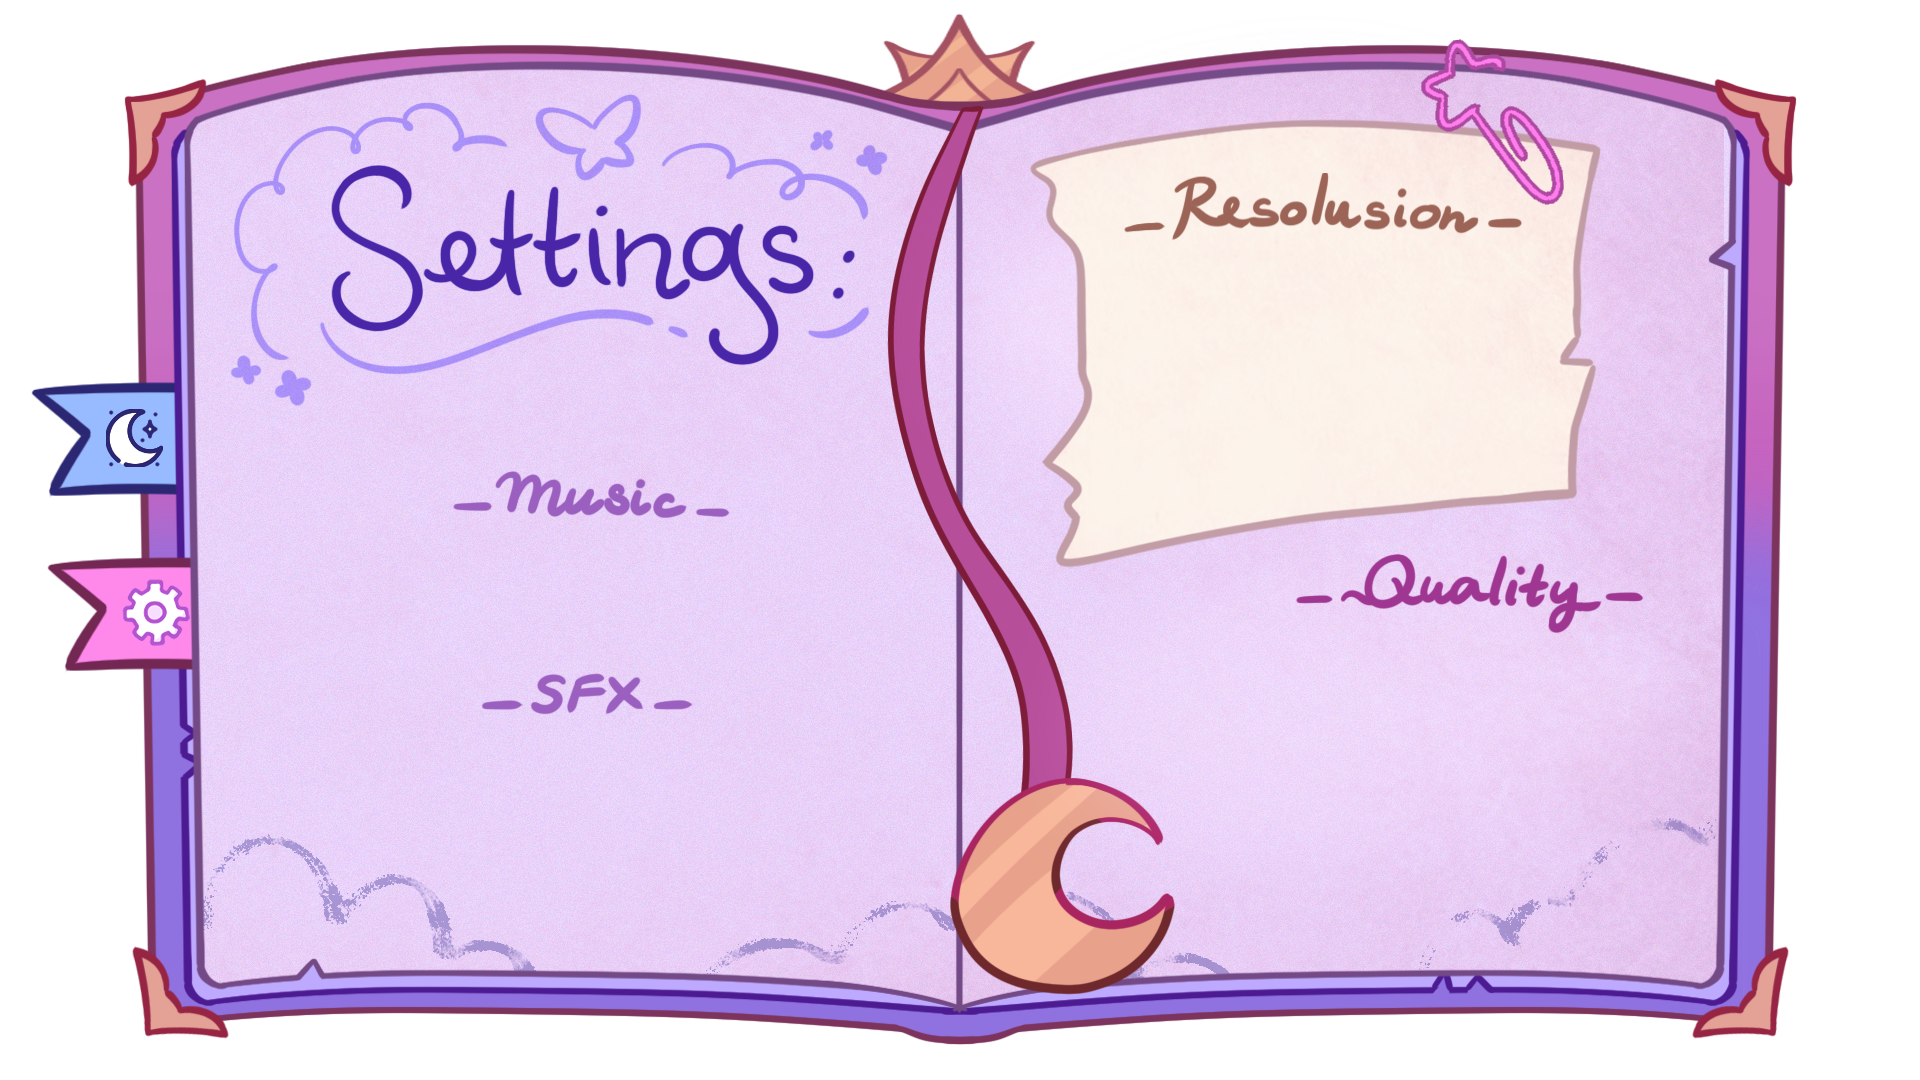 Settings:
-Music-
-SFX-
-Resolusion-
-Quality-